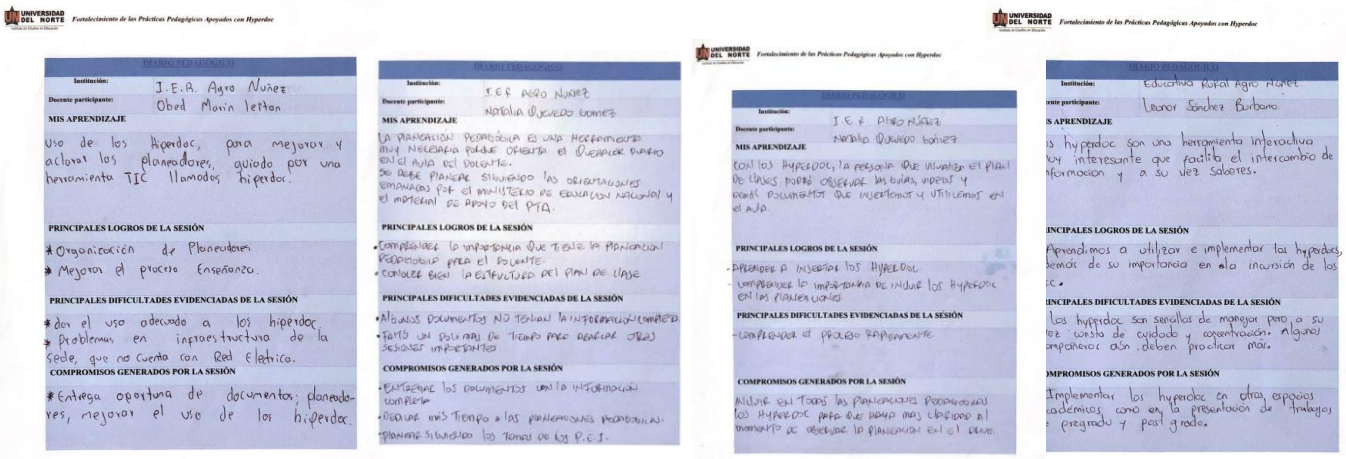 UNIVERSIDAD
DEL NORTE
Fortalecimiento de las Prácticas Pedagógicas Apoyados con Hyperdoc
Instituto de Estudios en Educación
DIARIO PEDAGOGICO
Institución:
I.E.R. Agro Nuñez
Docente participante:
Obed Marin
MIS APRENDIZAJE
Uso de los Hiperdoc, para mejorar y
aclarar los planeadores, guiado por una
herramienta TIC llamados hiperdoc.
PRINCIPALES LOGROS DE LA SESIÓN
* Organización de Planeadores
* Mejorar el proceso Enseñanza.
PRINCIPALES DIFICULTADES EVIDENCIADAS DE LA SESIÓN
* dar el uso adecuado a los hiperdoc
* Problemas en infraestructura de la
sede, que no cuenta con Red Eletrica.
COMPROMISOS GENERADOS POR LA SESIÓN
* Entrega oportuna de documentos; planeado-
res, mejorar el uso de los hiperdoc.
DIARIO PEDAGOGICO
Institución:
I.E.R AGRO NUÑEZ
Docente participante:
NATALIA QUEVEDO GOMEZ
MIS APRENDIZAJE
LA PLANEACIÓN PEDAGÓGICA ES UNA HERRAMIENTA
MUY NECESARIA PORQUE ORIENTA EL QUEHACER DIARIO
EN EL AULA DEL DOCENTE.
SE DEBE PLANEAR SIGUIENDO LAS ORIENTACIONES
EMANADAS POR EL MINISTERIO DE EDUCACION NACIONAL Y
EL MATERIAL DE APOYO DEL PTA.
PRINCIPALES LOGROS DE LA SESIÓN
• COMPRENDER LA IMPORTANCIA QUE TIENE LA PLANEACION
PEDAGOGICA PARA EL DOCENTE.
• CONOCER BIEN LA ESTRUCTURA DEL PLAN DE CLASE
PRINCIPALES DIFICULTADES EVIDENCIADAS DE LA SESIÓN
• ALGUNOS DOCUMENTOS NO TENIAN LA INFORMACIÓN COMPLETA
• FALTÓ UN DE TIEMPO PARA ABARCAR OTRAS
SESIONES IMPORTANTES
COMPROMISOS GENERADOS POR LA SESIÓN
• ENTREGAR LOS DOCUMENTOS CON LA INFORMACION
COMPLETA
• DEDICAR MÁS TIEMPO A LAS PLANEACIONES PEDAGOGICAS.
• PLANEAR SIGUIENDO LOS TEMAS DE LOS P.E.I.
UNIVERSIDAD
DEL NORTE
Fortalecimiento de las Prácticas Pedagógicas Apoyados con Hyperdoc
DIARIO PEDAGOGICO
Institución:
I.E.R AGRO NÚÑEZ
Docente participante:
Natalia Quevedo Gómez
MIS APRENDIZAJE
CON LOS HYPERDOC, LA PERSONA QUE VISUALIZA EL PLAN
DE CLASES, PODRÁ OBSERVAR LAS GUÍAS, VIDEOS Y
DEMÁS DOCUMENTOS QUE INSERTEMOS Y UTILICEMOS EN
EL AULA.
PRINCIPALES LOGROS DE LA SESIÓN
- APRENDER A INSERTAR LOS HYPERDOC
- COMPRENDER LA IMPORTANCIA DE INCLUIR LOS HYPERDOC
EN LAS PLANEACIONES
PRINCIPALES DIFICULTADES EVIDENCIADAS DE LA SESIÓN
- COMPRENDER EL PROCESO RAPIDAMENTE
COMPROMISOS GENERADOS POR LA SESIÓN
INCLUIR EN TODAS LAS PLANEACIONES PEDAGOGICAS
LOS HYPERDOC PARA QUE HAYA MAS CLARIDAD AL
MOMENTO DE OBSERVAR LA PLANEACION EN EL DRIVE.
UNIVERSIDAD
DEL NORTE
Fortalecimiento de las Prácticas Pedagógicas Apoyados con Hyperdoc
Instituto de Estudios en Educación
DIARIO PEDAGOGICO
Institución:
Educativa Rural Agro Núñez
ente participante:
Leonor Sánchez Burbano.
S APRENDIZAJE
s hyperdoc son una herramienta interactiva
uy interesante que facilita el intercambio de
formacion y a su vez saberes.
INCIPALES LOGROS DE LA SESIÓN
Aprendimos a utilizar e implementar los hyperdoc,
demás de su importancia en la incursión de las
c.
INCIPALES DIFICULTADES EVIDENCIADAS DE LA SESIÓN
los hyperdoc son senallos de manejar pero a su
ez consta de cuidado y concentración. Algunos
ompañeros aún deben practicar más.
OMPROMISOS GENERADOS POR LA SESIÓN
Implementar los hyperdoc en otros espacios
académicos como en la presentación de trabajos
pregrado y post grado.